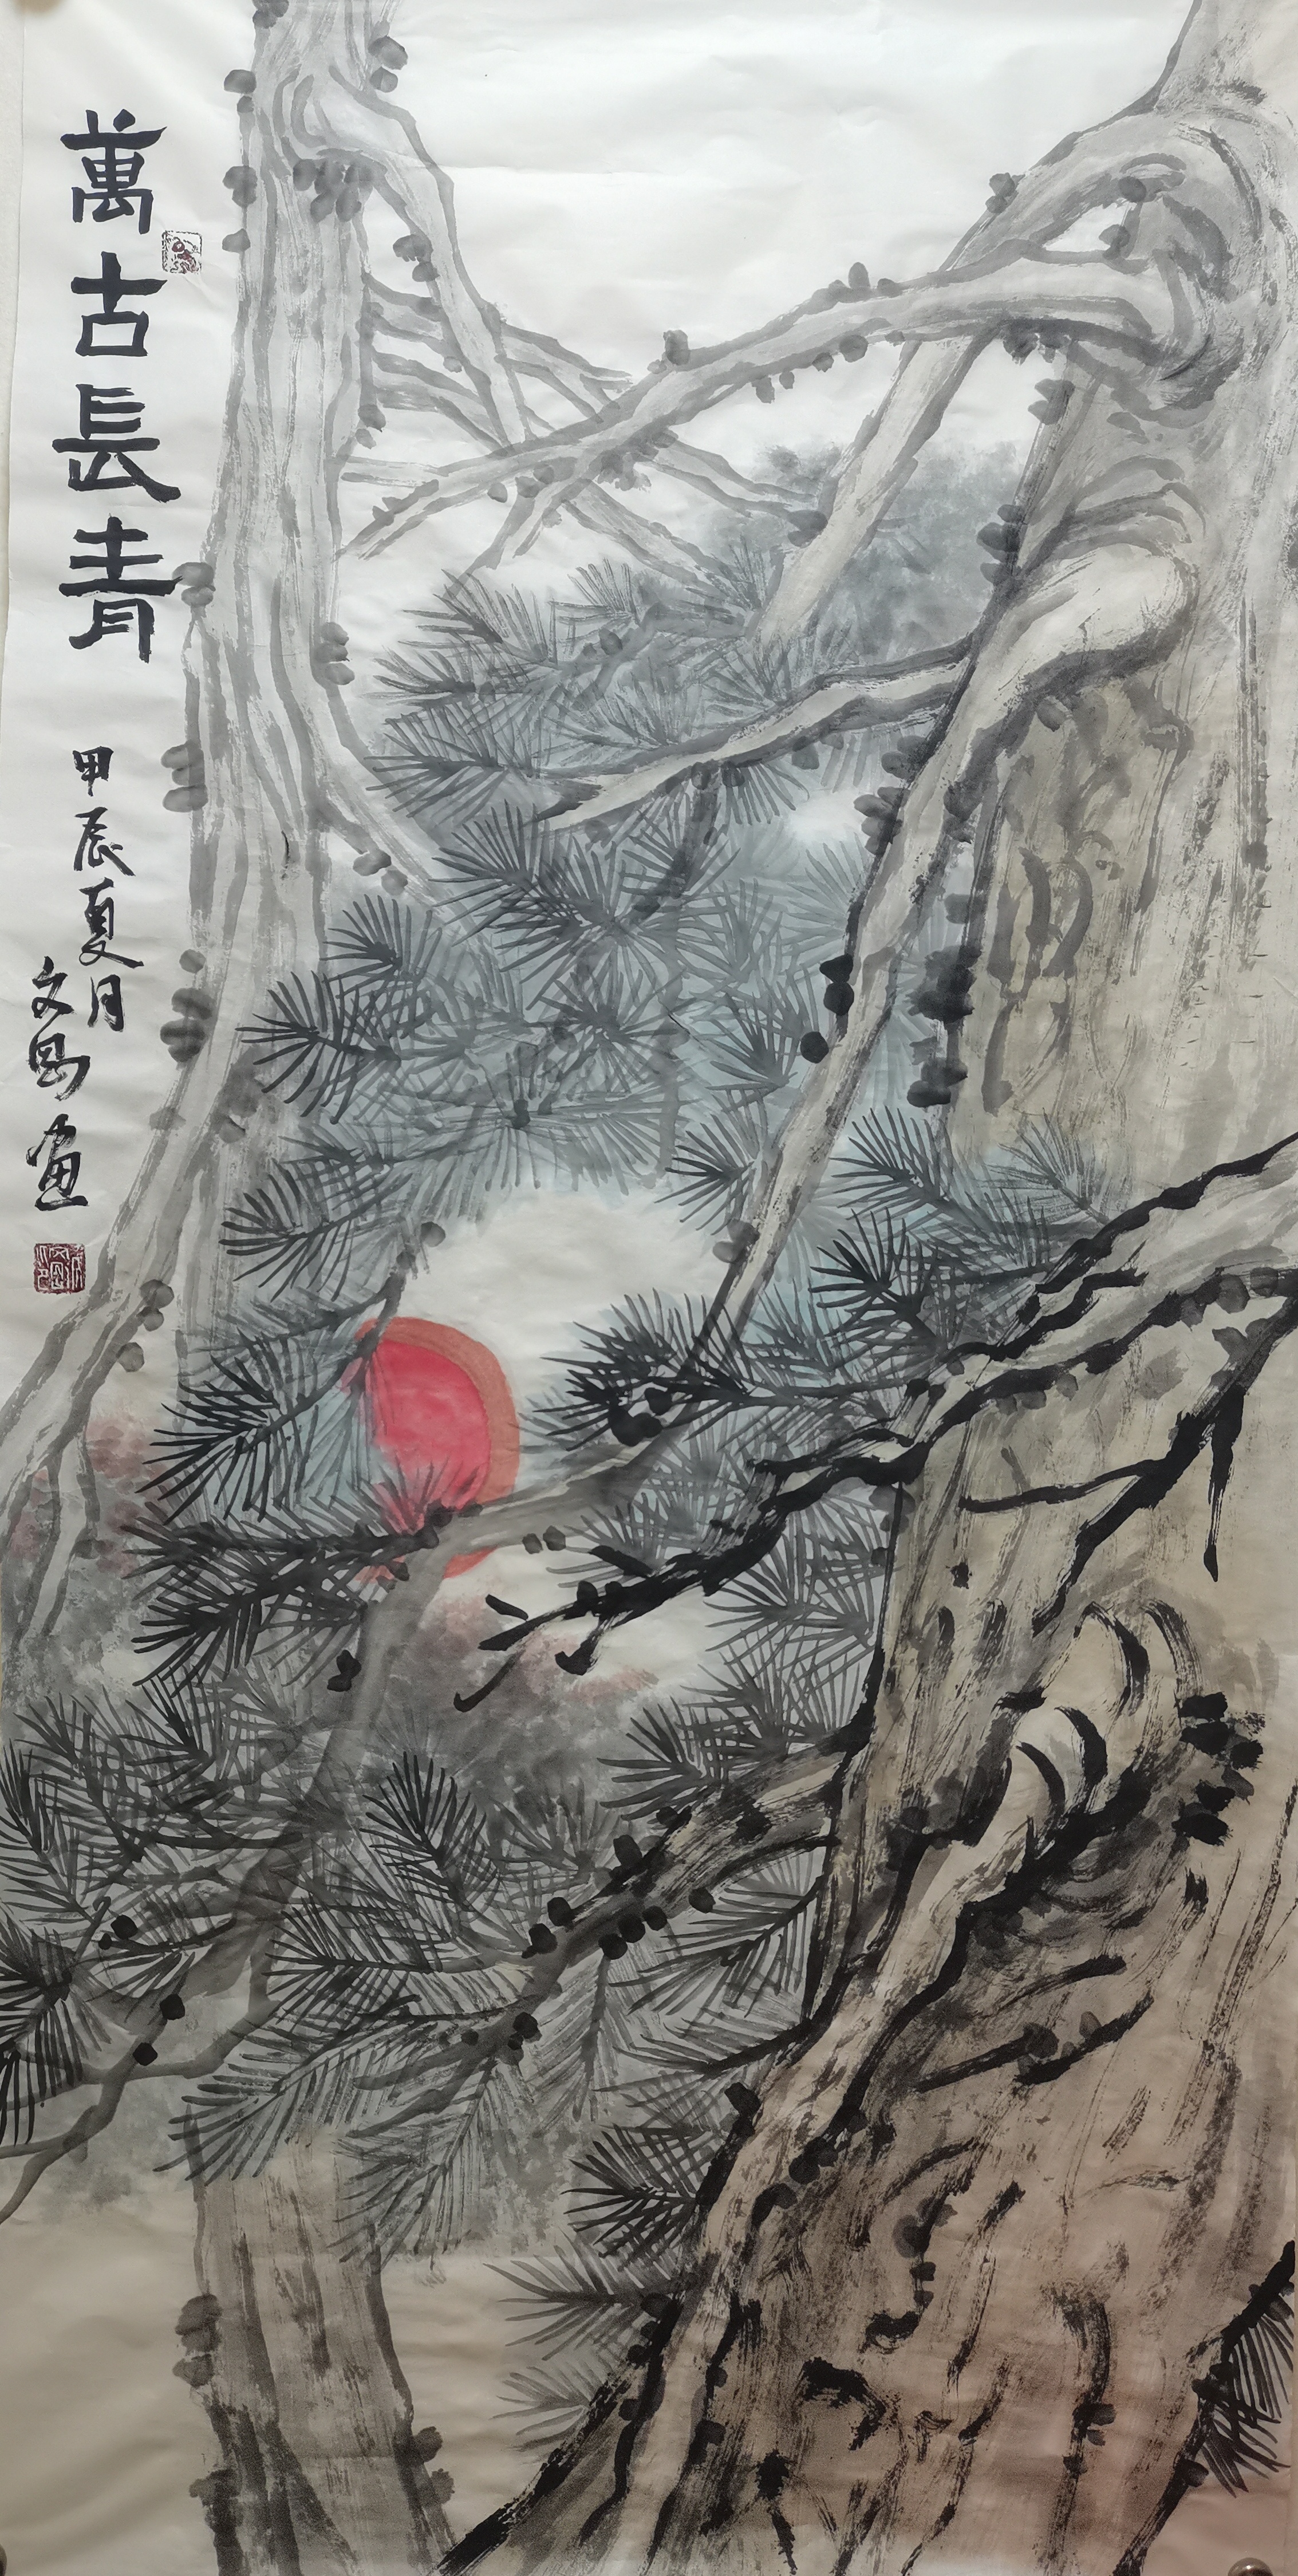 萬古長青
甲辰夏月
文昌画